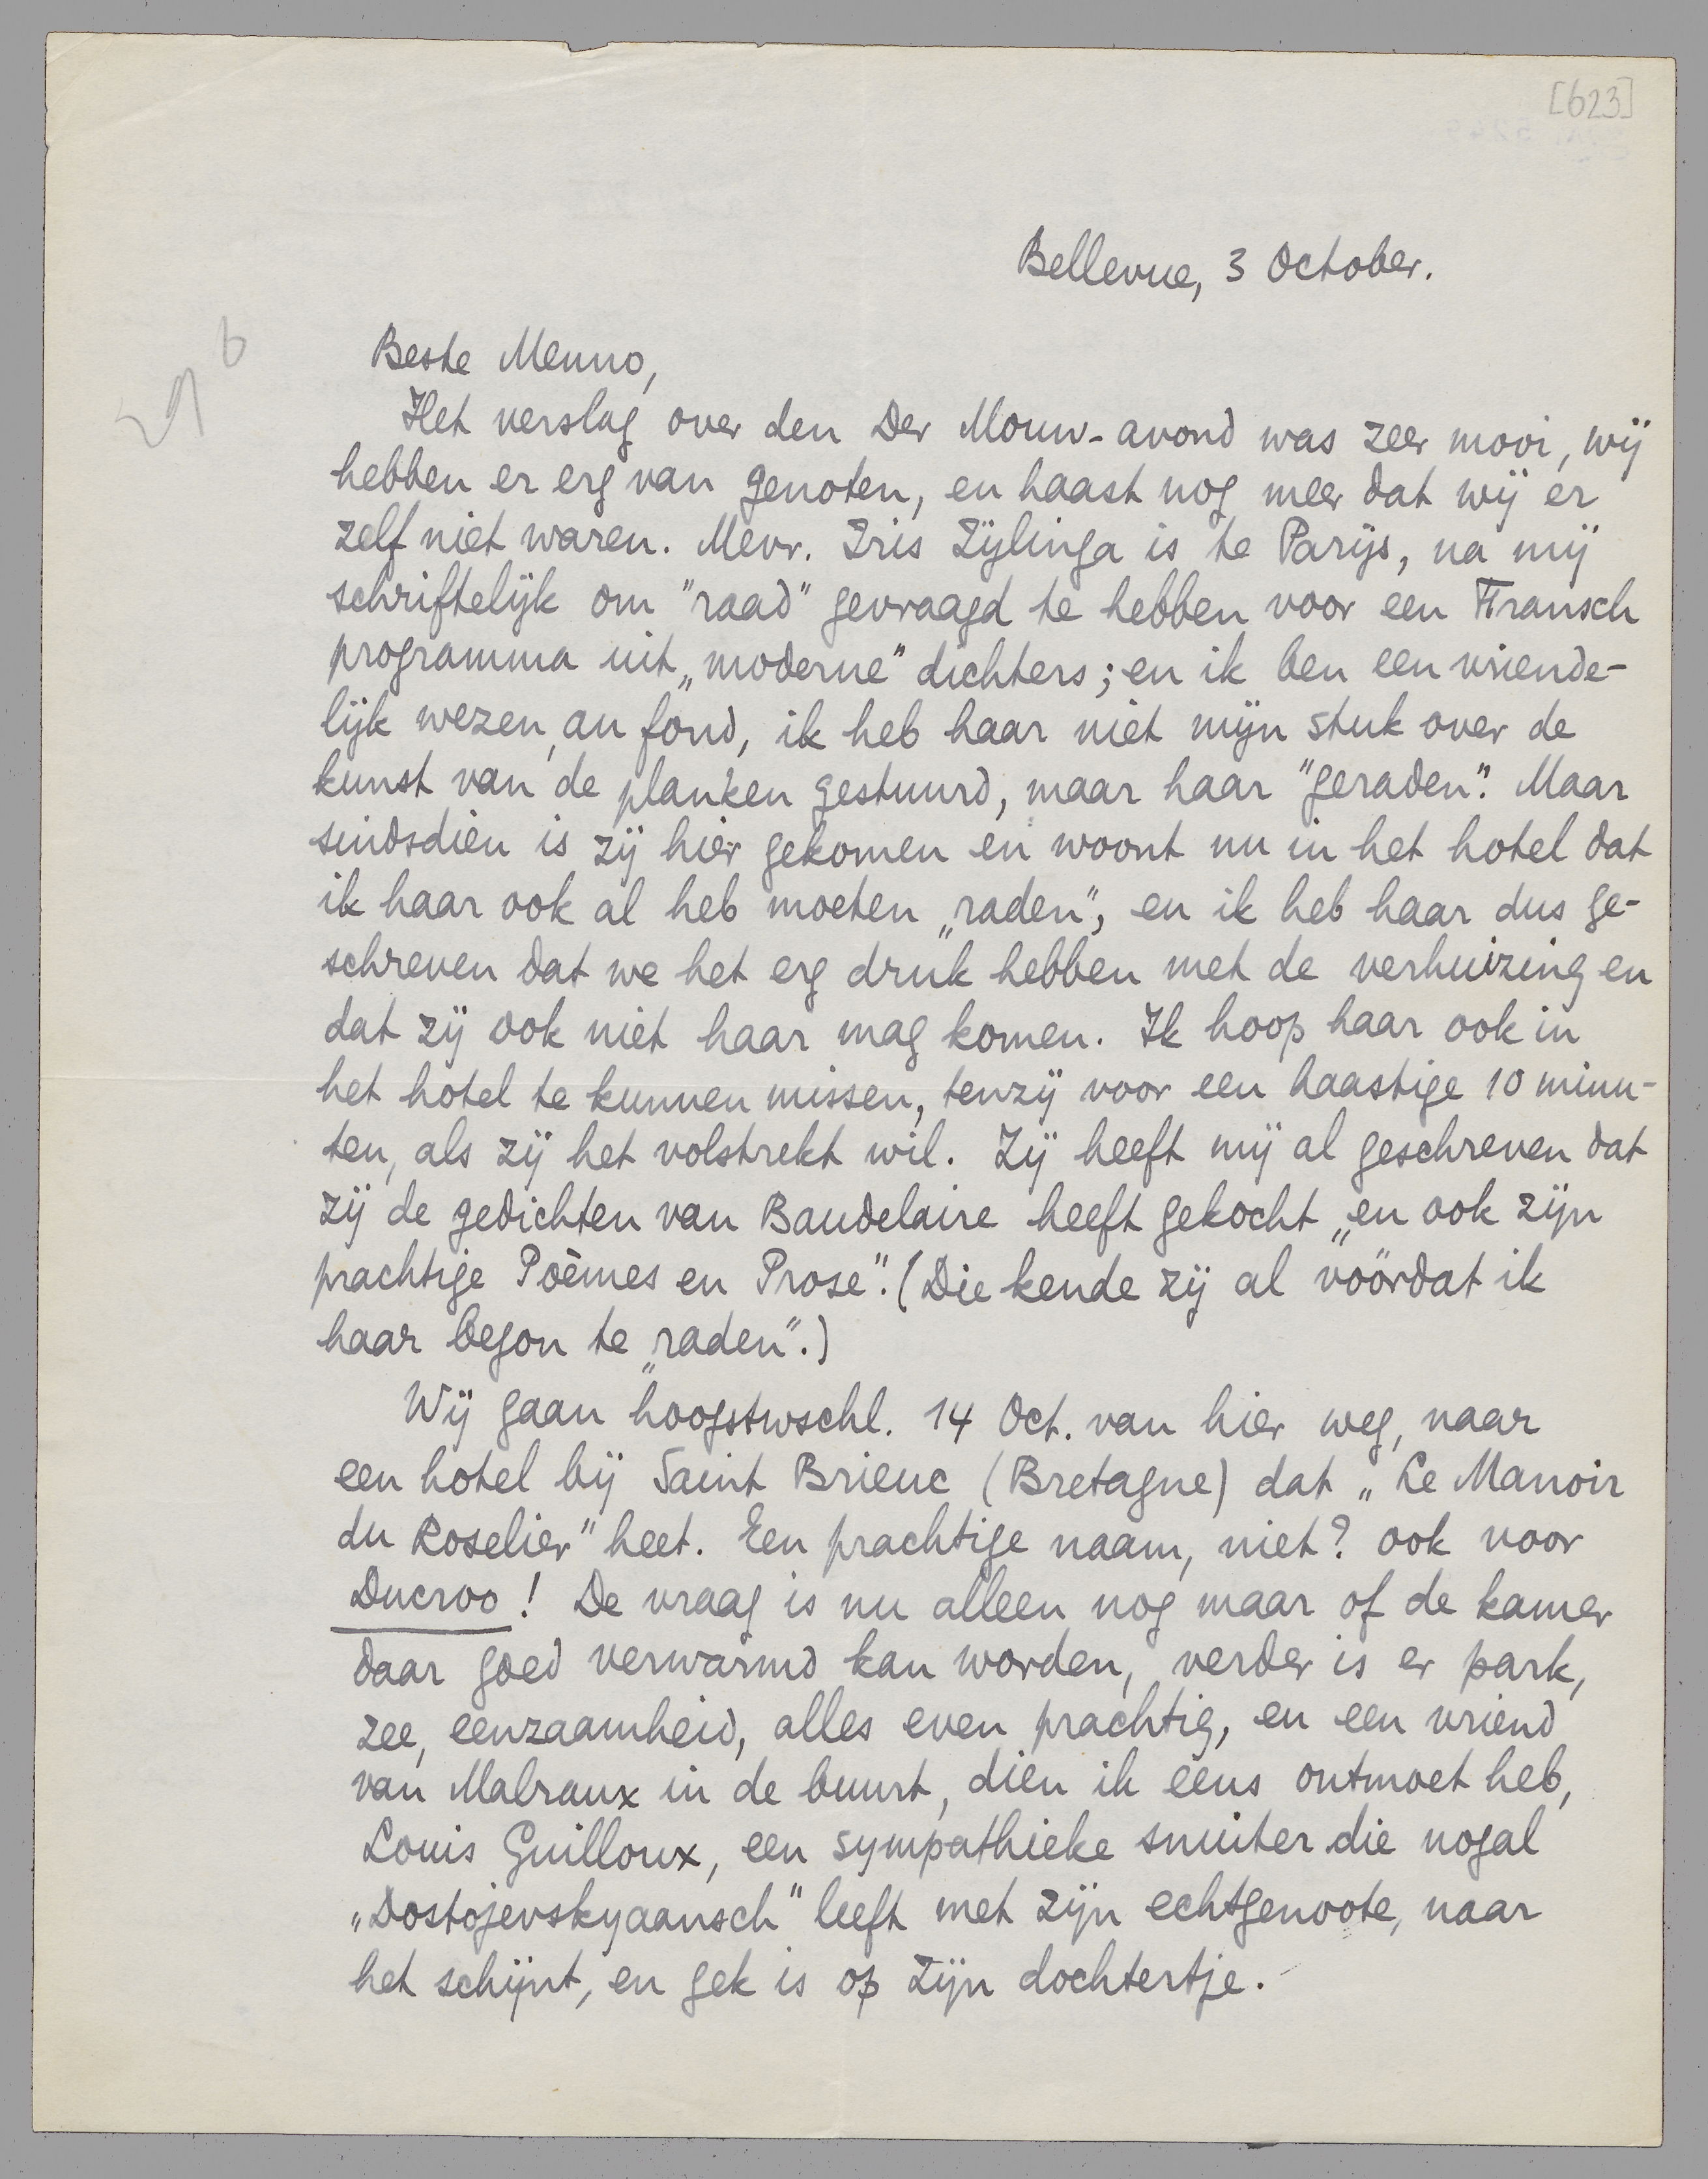 [623]
Bellevue, 3 October.
Beste Menno,
Het verslag over den Der Mouw-avond was zeer mooi, wij
hebben er erg van genoten, en haast nog meer dat wij er
zelf niet waren. Mevr. Iris Zijlinga is te Parijs, na mij
schriftelijk om "raad" gevraagd te hebben voor een Fransch
programma uit „moderne" dichters; en ik ben een vriende-
lijk wezen, au fond, ik heb haar niet mijn stuk over de
kunst van de planken gestuurd, maar haar "geraden". Maar
sindsdien is zij hier gekomen en woont nu in het hotel dat
ik haar ook al heb moeten „raden", en ik heb haar dus ge-
schreven dat we het erg druk hebben met de verhuizing en
dat zij ook niet haar mag komen. Ik hoop haar ook in
het hotel te kunnen missen, tenzij voor een haastige 10 minu-
ten, als zij het volstrekt wil. Zij heeft mij al geschreven dat
zij de gedichten van Baudelaire heeft gekocht „en ook zijn
prachtige Poèmes en Prose". (Die kende zij al vóórdat ik
haar begon te „raden".)
Wij gaan hoogstwschl. 14 Oct. van hier weg, naar
een hotel bij Saint Brieuc (Bretagne) dat „Le Manoir
du Roselier" heet. Een prachtige naam, niet? ook voor
Ducroo! De vraag is nu alleen nog maar of de kamer
daar goed verwarmd kan worden, verder is er park,
zee, eenzaamheid, alles even prachtig, en een vriend
van Malraux in de buurt, dien ik eens ontmoet heb,
Louis Guilloux, een sympathieke snuiter die nogal
„Dostojevskyaansch" leeft met zijn echtgenoote, naar
het schijnt, en gek is op zijn dochtertje.